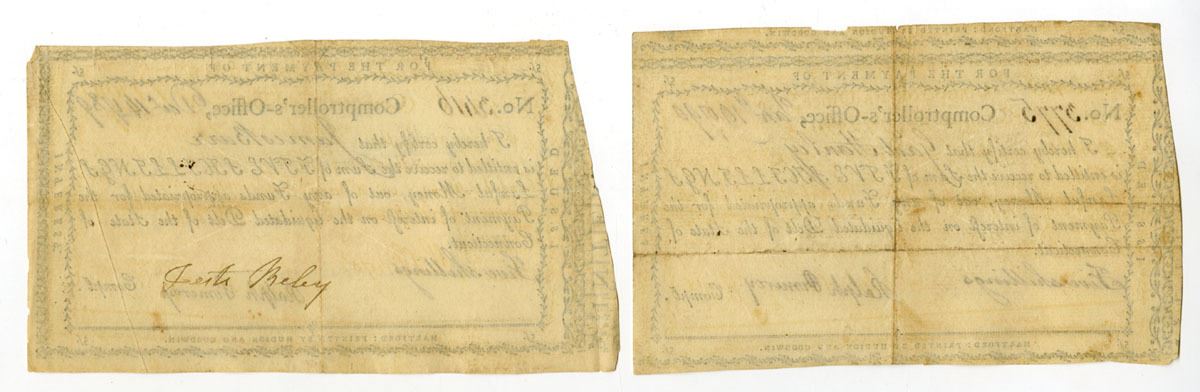 5/.
FOR THE PAYMENT OF
5/.
No. 3416 Comptroller's-Office,
I hereby certify, that
is entitled to receive the Sum of FIVE SHILLINGS
Lawful Money, out of any Funds appropriated for the
Payment of interest on the liquidated Debt of the State of
Connecticut.
Five Shillings
Ralph Pomeroy Compt.
INTEREST
ISSUED
HARTFORD: PRINTED BY HUDSON AND GOODWIN.
5/.
HARTFORD: PRINTED BY HUDSON AND GOODWIN.
5/.
FOR THE PAYMENT OF
5/.
No. 3775 Comptroller's-Office,
I hereby certify that
is entitled to receive the Sum of FIVE SHILLINGS
Lawful Money, out of any Funds appropriated for the
Payment of interest on the liquidated Debt of the State of
Connecticut.
Five shillings
Ralph Pomeroy Compt.
ISSUED
HARTFORD: PRINTED BY HUDSON AND GOODWIN.
5/.